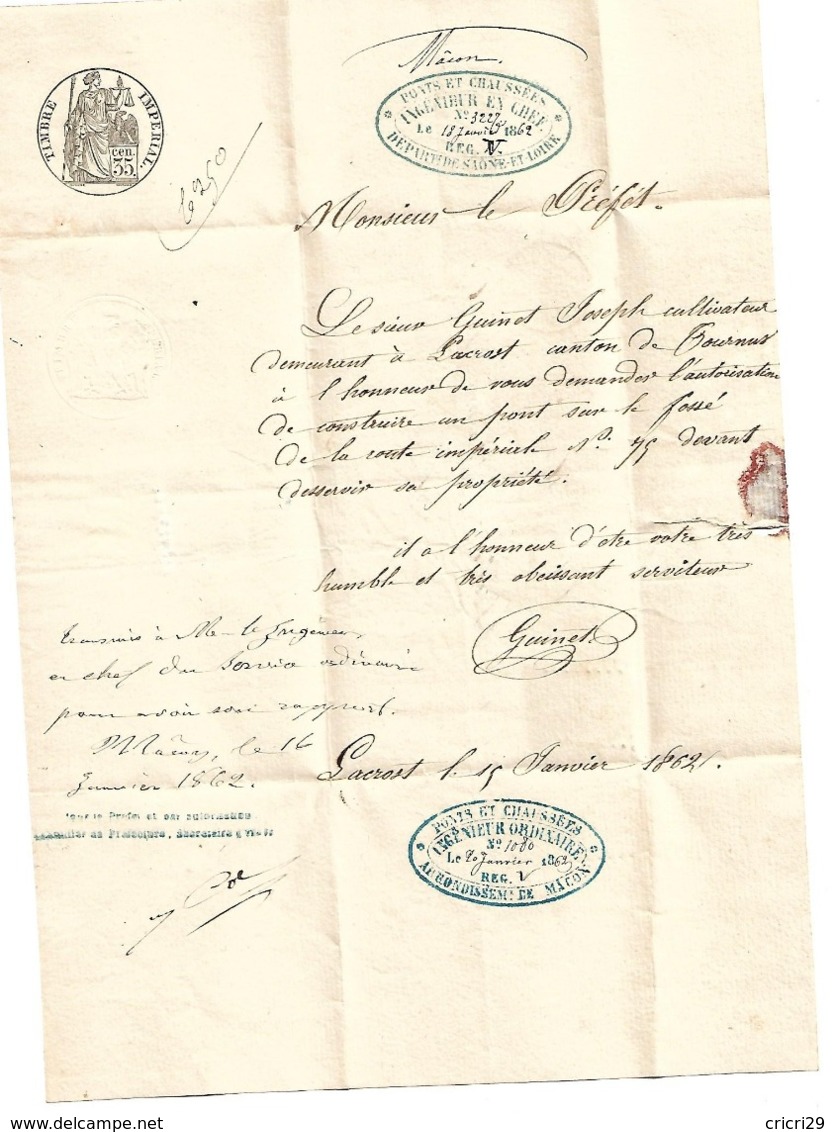 Mâcon.
PONTS ET CHAUSSÉES
INGÉNIEUR EN CHEF
No 3227
Le 18 Janvier 1862
REG. V.
DÉPART. DE SAÔNE-ET-LOIRE
TIMBRE IMPERIAL.
35 cen.
Monsieur le Préfet.
Le sieur Guinet Joseph cultivateur
demeurant à Lacrost canton de Tournus
à l'honneur de vous demander l'autorisation
de construire un pont sur le fossé
de la route impériale No. 75 devant
desservir sa propriété.
il a l'honneur d'être votre très
humble et très obeissant serviteur
Guinet
transmis à Mr l'Ingénieur
en chef du Service ordinaire
pour avoir son rapport.
Mâcon, le 16
Janvier 1862.
Pour le Préfet et par autorisation
Conseiller de Préfecture, Secrétaire
Lacrost le 15 Janvier 1862.
PONTS ET CHAUSSÉES
INGÉNIEUR ORDINAIRE
No 1080
Le 20 Janvier 1862
REG. V
ARRONDISSEMt DE MÂCON
delcampe.net
cricri29